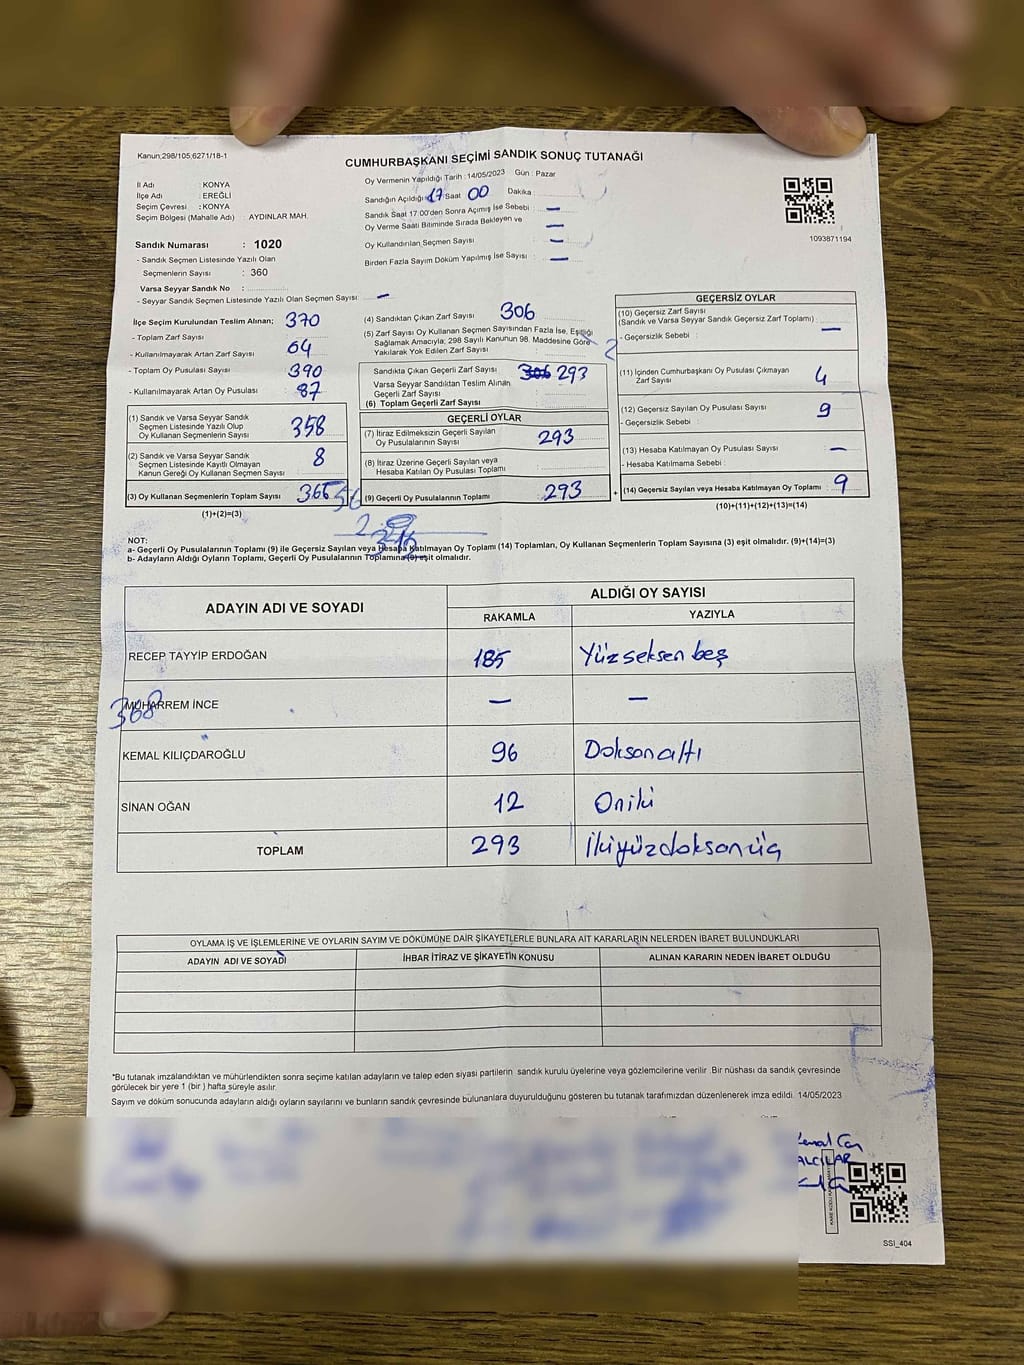 Kanun;298/105;6271/18-1
CUMHURBAŞKANI SEÇİMİ SANDIK SONUÇ TUTANAĞI
İl Adı : KONYA
İlçe Adı : EREĞLİ
Seçim Çevresi : KONYA
Seçim Bölgesi (Mahalle Adı) : AYDINLAR MAH.
Sandık Numarası : 1020
- Sandık Seçmen Listesinde Yazılı Olan
Seçmenlerin Sayısı : 360
Varsa Seyyar Sandık No :
- Seyyar Sandık Seçmen Listesinde Yazılı Olan Seçmen Sayısı: —
Oy Vermenin Yapıldığı Tarih : 14/05/2023 Gün : Pazar
Sandığın Açıldığı 17 Saat 00 Dakika :
Sandık Saat 17:00'den Sonra Açımış İse Sebebi —
Oy Verme Saati Bitiminde Sırada Bekleyen ve —
Oy Kullandırılan Seçmen Sayısı : —
Birden Fazla Sayım Döküm Yapılmış İse Sayısı : —
1093871194
İlçe Seçim Kurulundan Teslim Alınan; 370
- Toplam Zarf Sayısı
- Kullanılmayarak Artan Zarf Sayısı 64
- Toplam Oy Pusulası Sayısı 390
- Kullanılmayarak Artan Oy Pusulası 87
(1) Sandık ve Varsa Seyyar Sandık
Seçmen Listesinde Yazılı Olup
Oy Kullanan Seçmenlerin Sayısı 358
(2) Sandık ve Varsa Seyyar Sandık
Seçmen Listesinde Kayıtlı Olmayan
Kanun Gereği Oy Kullanan Seçmen Sayısı 8
(3) Oy Kullanan Seçmenlerin Toplam Sayısı
(1)+(2)=(3)
(4) Sandıktan Çıkan Zarf Sayısı 306
(5) Zarf Sayısı Oy Kullanan Seçmen Sayısından Fazla İse, Eşitliği
Sağlamak Amacıyla; 298 Sayılı Kanunun 98. Maddesine Göre
Yakılarak Yok Edilen Zarf Sayısı
2
Sandıkta Çıkan Geçerli Zarf Sayısı 306 293
Varsa Seyyar Sandıktan Teslim Alınan
Geçerli Zarf Sayısı
(6) Toplam Geçerli Zarf Sayısı
GEÇERLİ OYLAR
(7) İtiraz Edilmeksizin Geçerli Sayılan
Oy Pusulalarının Sayısı 293
(8) İtiraz Üzerine Geçerli Sayılan veya
Hesaba Katılan Oy Pusulası Toplamı
(9) Geçerli Oy Pusulalarının Toplamı 293
GEÇERSİZ OYLAR
(10) Geçersiz Zarf Sayısı
(Sandık ve Varsa Seyyar Sandık Geçersiz Zarf Toplamı) —
- Geçersizlik Sebebi :
(11) İçinden Cumhurbaşkanı Oy Pusulası Çıkmayan
Zarf Sayısı 4
(12) Geçersiz Sayılan Oy Pusulası Sayısı 9
- Geçersizlik Sebebi :
(13) Hesaba Katılmayan Oy Pusulası Sayısı —
- Hesaba Katılmama Sebebi :
+ (14) Geçersiz Sayılan veya Hesaba Katılmayan Oy Toplamı 9
(10)+(11)+(12)+(13)=(14)
NOT:
a- Geçerli Oy Pusulalarının Toplamı (9) ile Geçersiz Sayılan veya Hesaba Katılmayan Oy Toplamı (14) Toplamları, Oy Kullanan Seçmenlerin Toplam Sayısına (3) eşit olmalıdır. (9)+(14)=(3)
b- Adayların Aldığı Oyların Toplamı, Geçerli Oy Pusulalarının Toplamına (9) eşit olmalıdır.
ADAYIN ADI VE SOYADI
ALDIĞI OY SAYISI
RAKAMLA YAZIYLA
RECEP TAYYİP ERDOĞAN 185 Yüzseksen beş
368
MUHARREM İNCE — —
KEMAL KILIÇDAROĞLU 96 Doksanaltı
SİNAN OĞAN 12 Oniki
TOPLAM 293 İkiyüzdoksanüç
OYLAMA İŞ VE İŞLEMLERİNE VE OYLARIN SAYIM VE DÖKÜMÜNE DAİR ŞİKAYETLERLE BUNLARA AİT KARARLARIN NELERDEN İBARET BULUNDUKLARI
ADAYIN ADI VE SOYADI İHBAR İTİRAZ VE ŞİKAYETİN KONUSU ALINAN KARARIN NEDEN İBARET OLDUĞU
*Bu tutanak imzalandıktan ve mühürlendikten sonra seçime katılan adayların ve talep eden siyasi partilerin sandık kurulu üyelerine veya gözlemcilerine verilir .Bir nüshası da sandık çevresinde
görülecek bir yere 1 (bir ) hafta süreyle asılır.
Sayım ve döküm sonucunda adayların aldığı oyların sayılarını ve bunların sandık çevresinde bulunanlara duyurulduğunu gösteren bu tutanak tarafımızdan düzenlenerek imza edildi. 14/05/2023
SSI_404